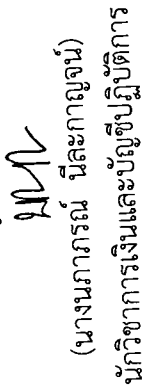 (นางนภาภรณ์ นีละกาญจน์)
นักวิชาการเงินและบัญชีปฏิบัติการ